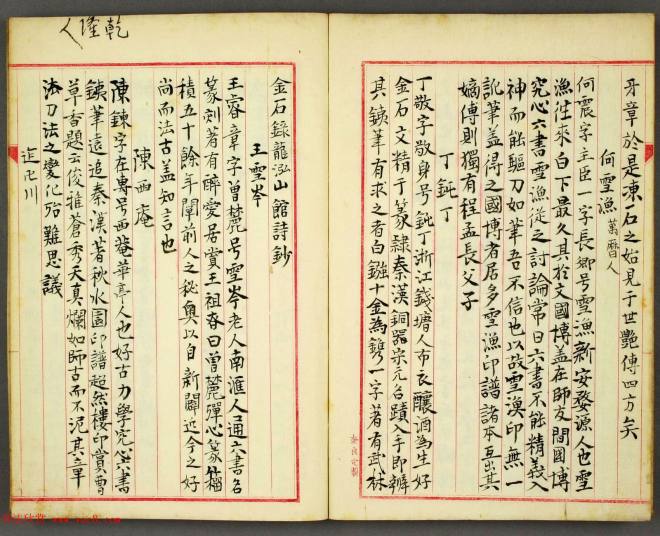 牙章於是凍石之始見于世艷傳四方矣
何雪漁 萬曆人
何震字主臣一字長卿号雪漁新安婺源人也雪
漁往來白下最久其於文國博蓋在師友間國博
究心六書雪漁從之討論常曰六書不能精義入
神而能驅刀如筆吾不信也以故雪漁印無一
訛筆蓋得之國博者居多雪漁印譜諸本互出其
嫡傳則獨有程孟長父子
丁鈍丁
丁敬字敬身号鈍丁浙江錢塘人布衣釀酒為生好
金石文精于篆隸秦漢銅器宋元名蹟入手即辨
其鐵筆有求之者白鏹十金為鐫一字著有武林
金石錄龍泓山館詩鈔
王雪岑
王睿章字曾麓号雪岑老人南滙人通六書名
篆刻著有醉愛居賞王祖昚曰曾麓殫心篆籀
積五十餘年闡前人之秘奧以自新闢近今之好
尚而法古蓋知言也
陳西庵
陳鍊字在專号西菴華亭人也好古力學究心六書
鐵筆遠追秦漢著秋水園印譜超然樓印賞曹
草香題云俊雅蒼秀天真爛如師古而不泥其章
法刀法之變化殆難思議
乾隆人